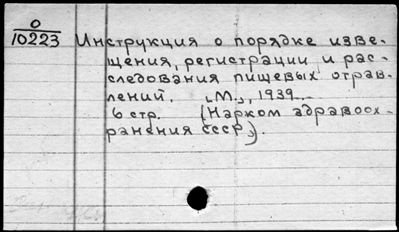 О
10223
Инструкция о порядке изве-
щения, регистрации и рас-
следования пищевых отрав-
лений. [М.], 1939.
6 стр. (Нарком здравоох-
ранения СССР).